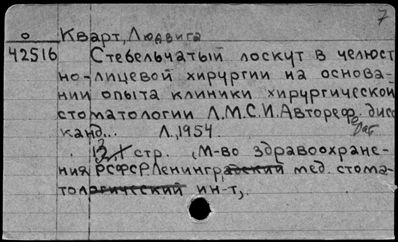 7
о Кварт, Людвига
42516 Стебельчатый лоскут в челюст
но-лицевой хирургии на основа-
нии опыта клиники хирургической
стоматологии Л.М.С.И. Автореф. дисс
канд... Л., 1954.
стр. (М-во здравоохране-
ния РСФСР Ленинградский мед. стома-
тологический ин-т,.